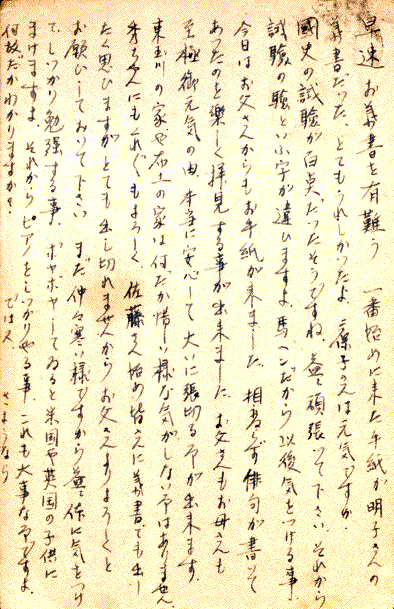 早速お葉書を有難う 一番始めに来た手紙が明子さんの
葉書だった、とてもうれしかったよ、保子さんは元気ですか、
國史の試験が百点だったそうですね、益々頑張って下さい、それから
試験の験といふ字が違ひますよ、馬ヘンだから以後気をつける事、
今日はお父さんからもお手紙が来ました、相変らず俳句が書いて
あったのを楽しく拝見する事が出来ました、お父さんもお母さんも
至極御元気の由、本当に安心して大いに張切る事が出来ます、
東玉川の家や の家は何だか惜しい様な気がしないではありません、
ちゃんにもくれぐもよろしく、佐藤さん始め皆さんに葉書でも出し
たく思ひますがとても出し切れませんからお父さんよりよろしくと
お願ひしておいて下さい まだ仲々寒い様ですから益々体に気をつけ
て、しっかり勉強する事、ボヤボヤしてゐると米国や英国の子供に
まけますよ、それからピアノをしっかりやる事、これも大事な事ですよ、
何故だかわかりますか？ では又 さようなら